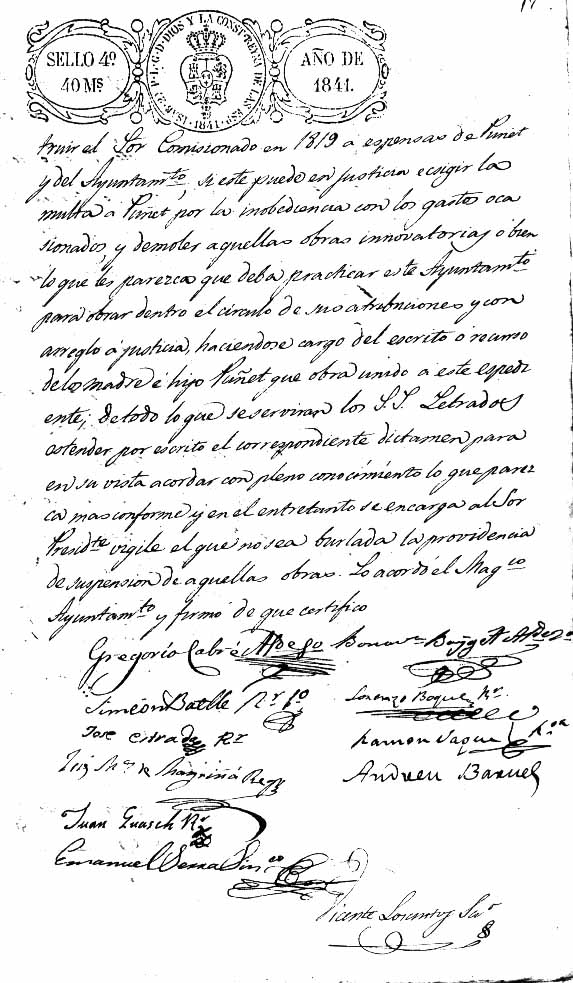 17.
SELLO 4º
40 Ms
ISABEL 2ª P. L. G. D. DIOS Y LA CONST. REYNA DE LAS ESP. 1841
AÑO DE
1841.
truir el Sor Comisionado en 1819 a espensas de Puñet
y del Ayuntamto, si este puede en justicia ecsigir la
multa a Puñet por la inobediencia con los gastos oca
sionados, y demoler aquellas obras innovatorias ó bien
lo que les parezca que deba practicar este Ayuntamto
para obrar dentro el círculo de sus atribuciones y con
arreglo á justicia, haciendose cargo del escrito ó recurso
de los madre é hijo Puñet que obra unido a este espedi
ente; de todo lo que se serviran los S.S. Letrados
estender por escrito el correspondiente dictamen para
en su vista acordar con pleno conocimiento lo que parez
ca mas conforme y en el entretanto se encarga al Sor
Presidte vigile el que no sea burlada la providencia
de suspension de aquellas obras. Lo acordó el Magco
Ayuntamto y firmó de que certifico
Gregorio Cabré
Simeón Batlle Rr
Lorenzo Boque Rr.
José Estrade Rr
Ramon
Andreu
Juan Guasch Rr
Emanuel Serra Sinco
Vicente Sio